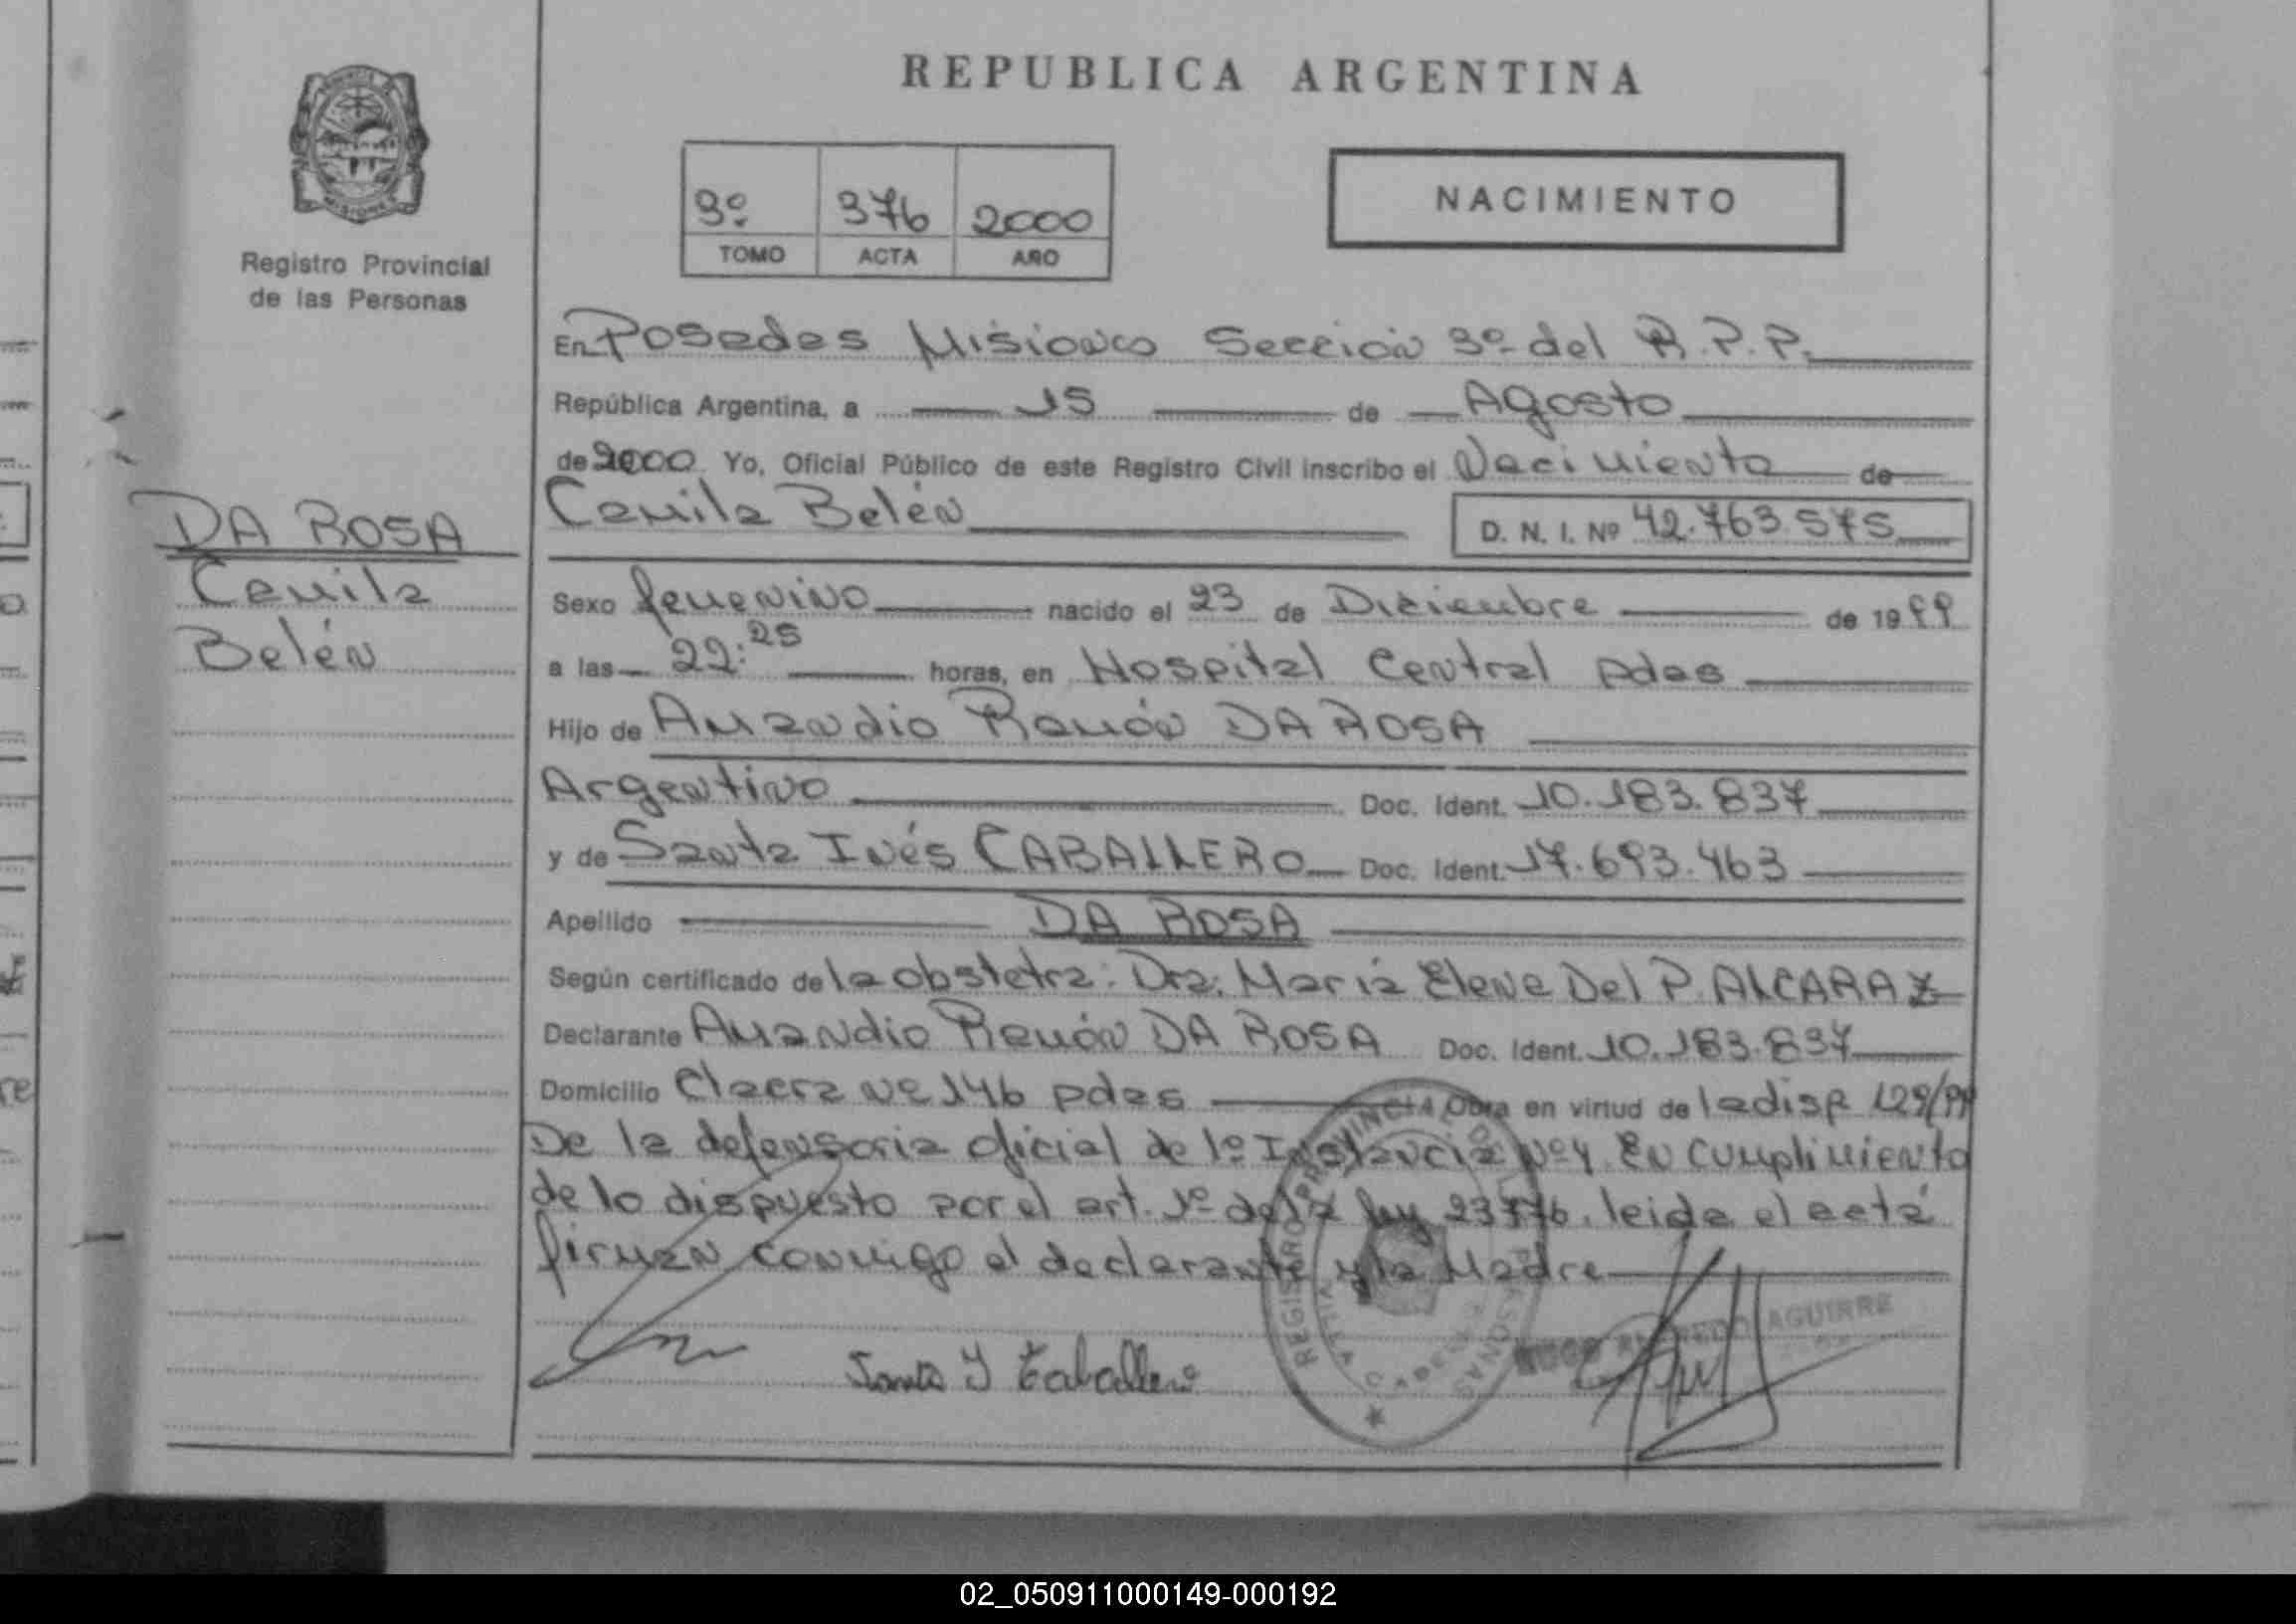 REPUBLICA ARGENTINA
MISIONES
Registro Provincial
de las Personas
3º 376 2000
TOMO ACTA AÑO
NACIMIENTO
En Posadas Misiones Sección 3º del R.P.P.
República Argentina, a 15 de Agosto
de 2000 Yo, Oficial Público de este Registro Civil inscribo el Nacimiento de
Camila Belén D. N. I. Nº 42.763.575
DA ROSA
Camila
Belén
Sexo femenino nacido el 23 de Diciembre de 1999
a las 22:25 horas, en Hospital Central pdas
Hijo de Amandio Ramón DA ROSA
Argentino Doc. Ident. 10.183.837
y de Santa Inés CABALLERO Doc. Ident. 17.693.463
Apellido DA ROSA
Según certificado de la obstetra: Dra: María Elena Del P. ALCARAZ
Declarante Amandio Ramón DA ROSA Doc. Ident. 10.183.837
Domicilio Nº 146 pdas Obra en virtud de la disp 129/99
De la defensoria oficial de 1º Instancia Nº 4 En Cumplimiento
de lo dispuesto por el art. 1º de la ley 23776. leida el acta
firman conmigo el declarante y la Madre
Santa I Caballero
REGISTRO PROVINCIAL DE LAS PERSONAS
HUGO ALFREDO AGUIRRE
02_050911000149-000192